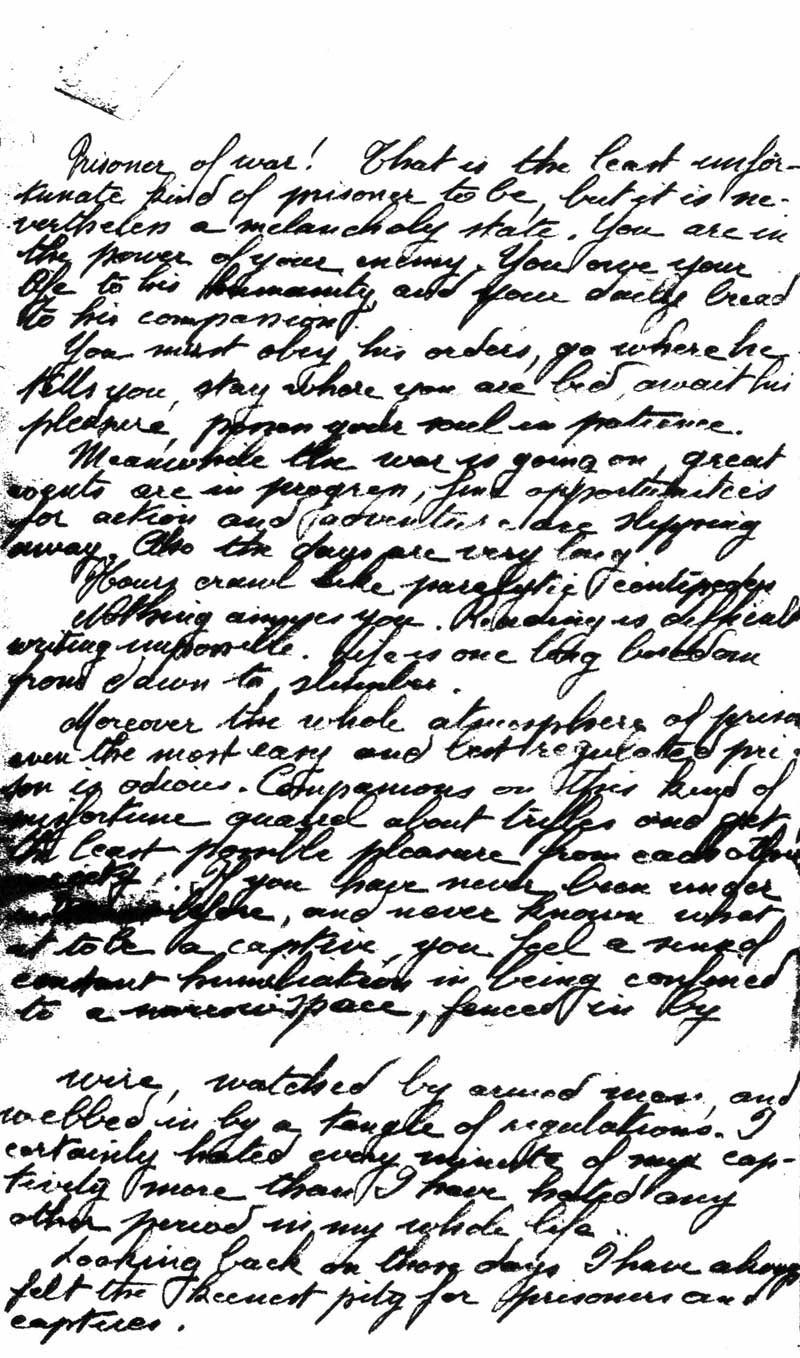 Prisoner of war! That is the least unfor-
tunate kind of prisoner to be, but it is ne-
vertheless a melancholy state. You are in
the power of your enemy. You owe your
life to his humanity, and your daily bread
to his compassion.
You must obey his orders, go where he
tells you, stay where you are bid, await his
pleasure, possess your soul in patience.
Meanwhile the war is going on, great
events are in progress, fine opportunities
for action and adventure are slipping
away. Also the days are very long.
Hours crawl like paralytic centipedes
Nothing amuses you. Reading is difficult
writing impossible. Life is one long boredom
from dawn to slumber.
Moreover the whole atmosphere of prison
even the most easy and best regulated pri-
son is odious. Companions on this kind of
misfortune quarrel about trifles and get
the least possible pleasure from each other
society. If you have never been under
before, and never known what
it to be a captive, you feel a sense of
constant humiliation in being confined
to a narrow space, fenced in by
wire, watched by armed men, and
webbed in by a tangle of regulations. I
certainly hated every minute of my cap-
tivity more than I have hated any
other period in my whole life.
Looking back on those days I have always
felt the keenest pity for prisoners and
captives.